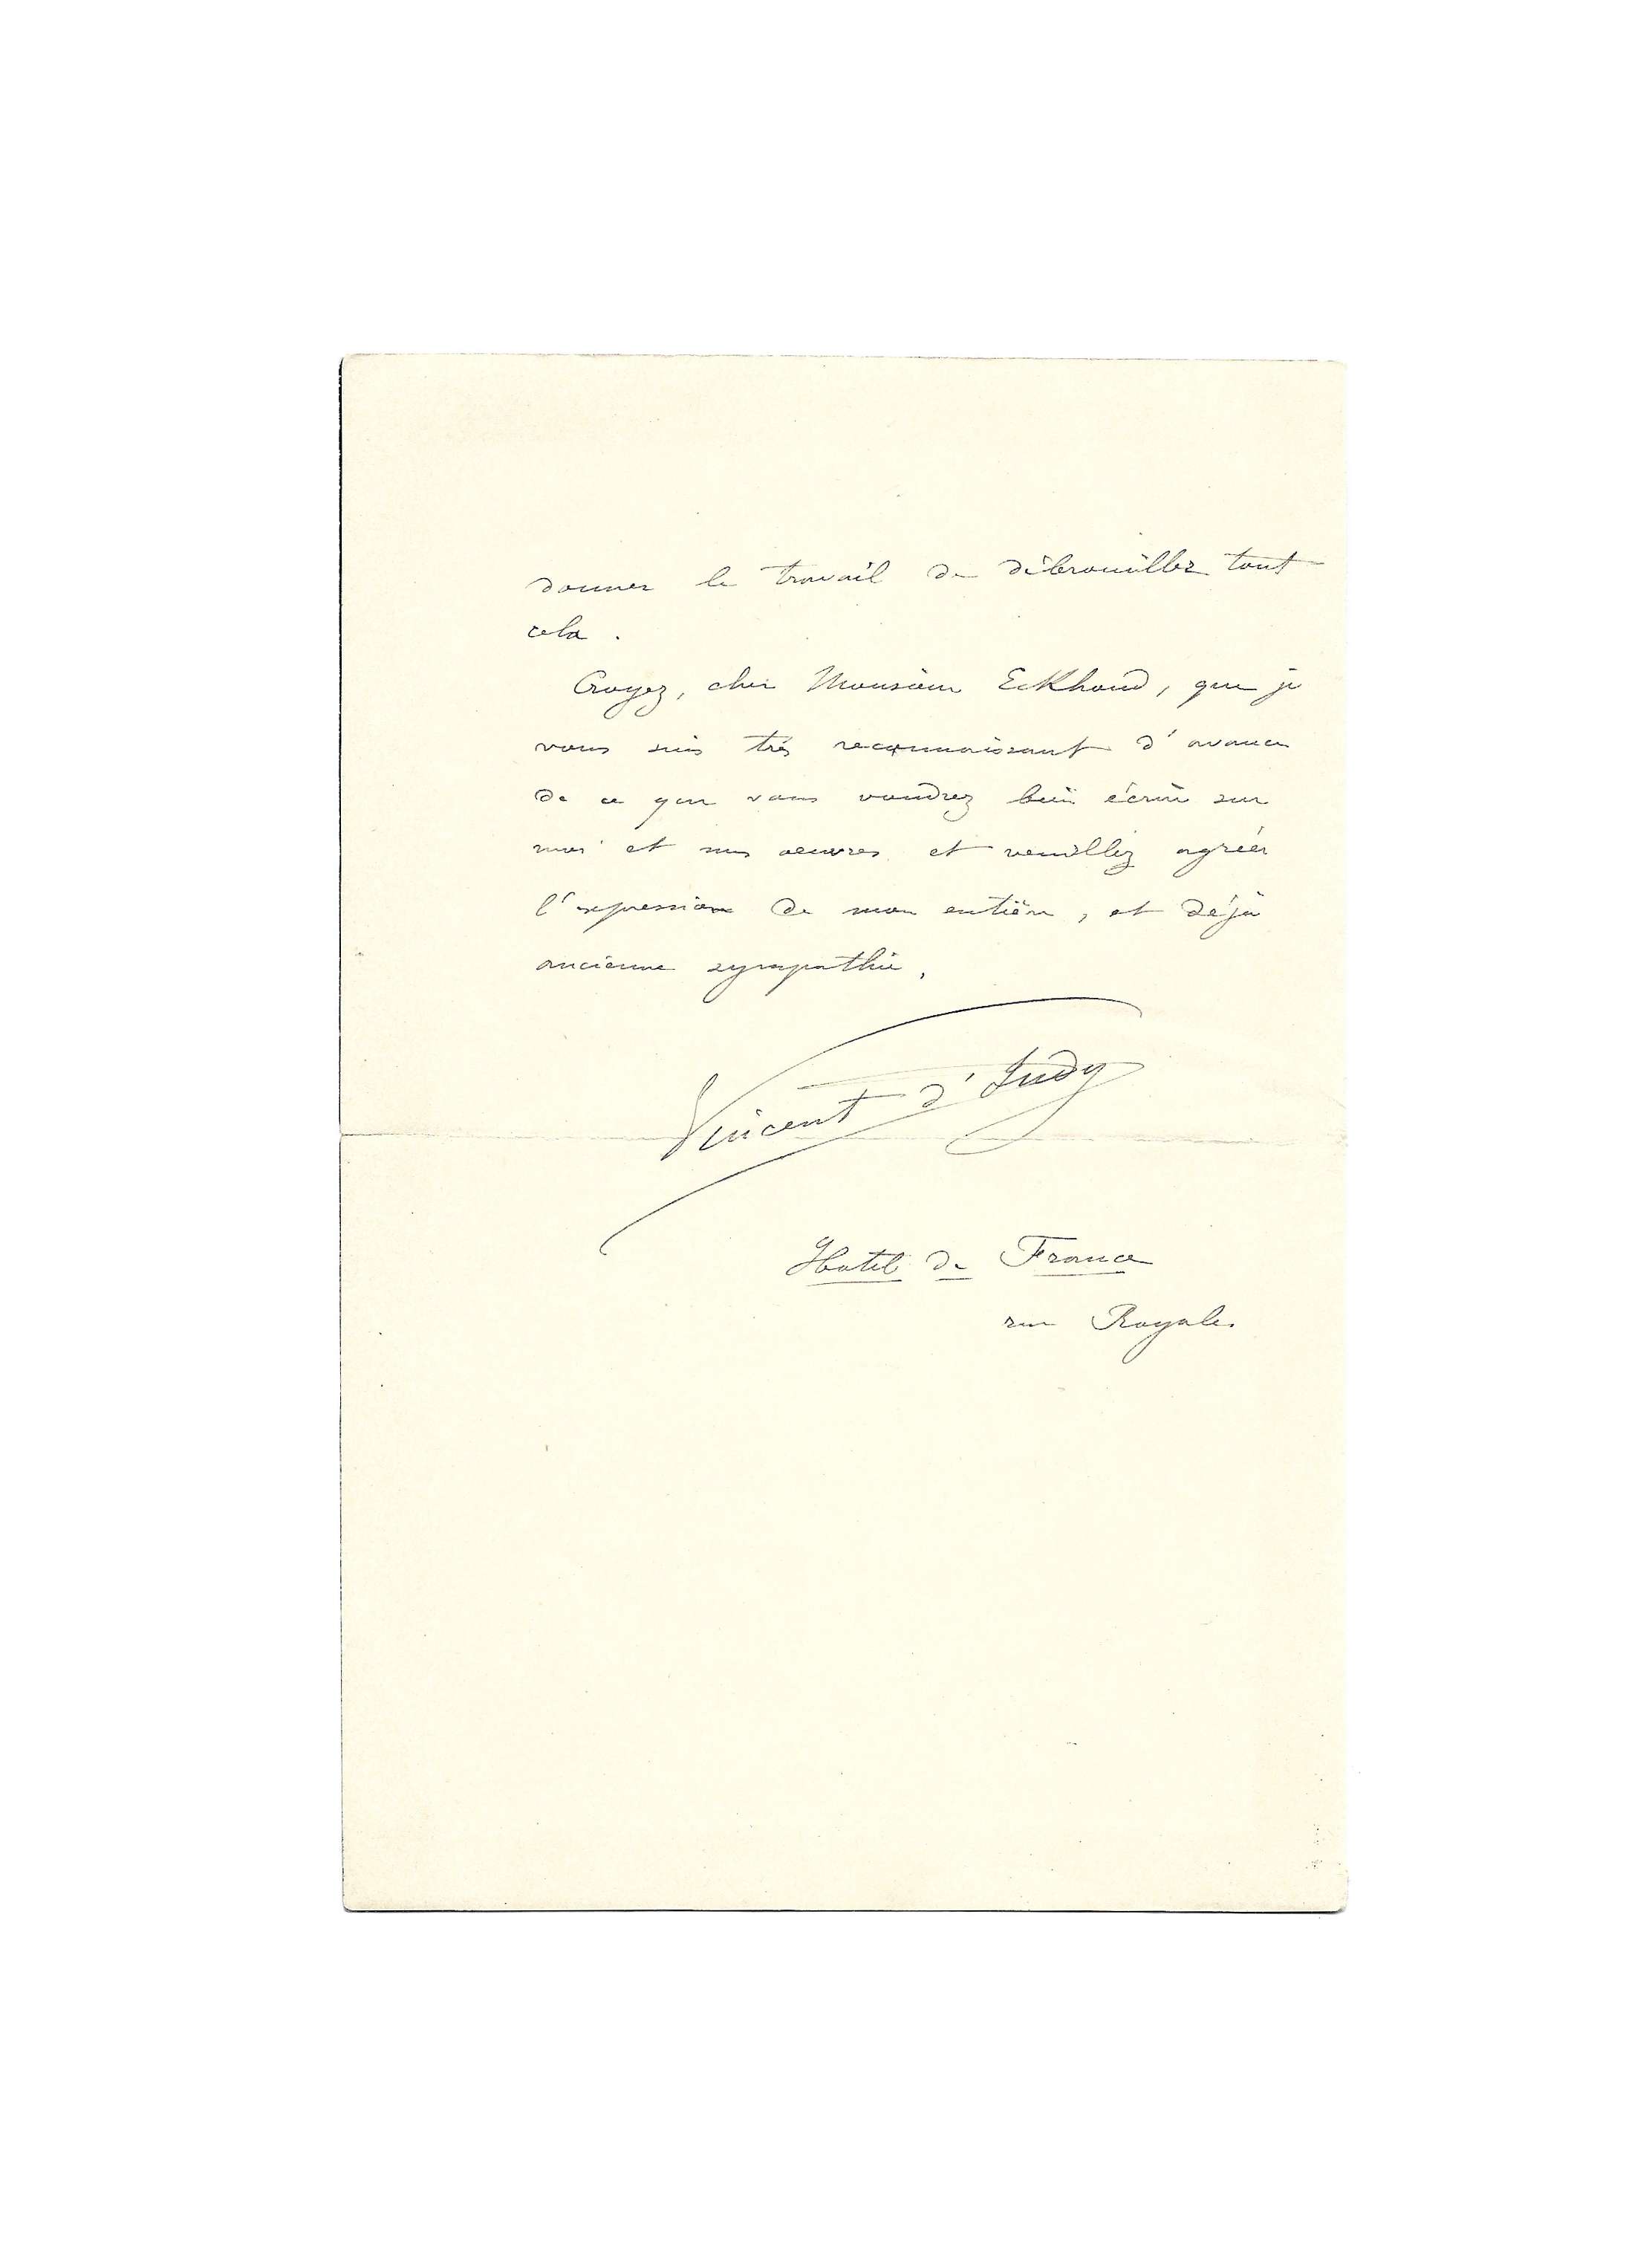 donner le travail de débrouiller tout
cela.
Croyez, cher Monsieur Eckhoud, que je
vous suis très reconnaissant d'avance
de ce que vous voudrez bien écrire sur
moi et mes oeuvres et veuillez agréer
l'expression de mon entière, et déjà
ancienne sympathie.
Vincent d'Indy
Hotel de France
rue Royale.